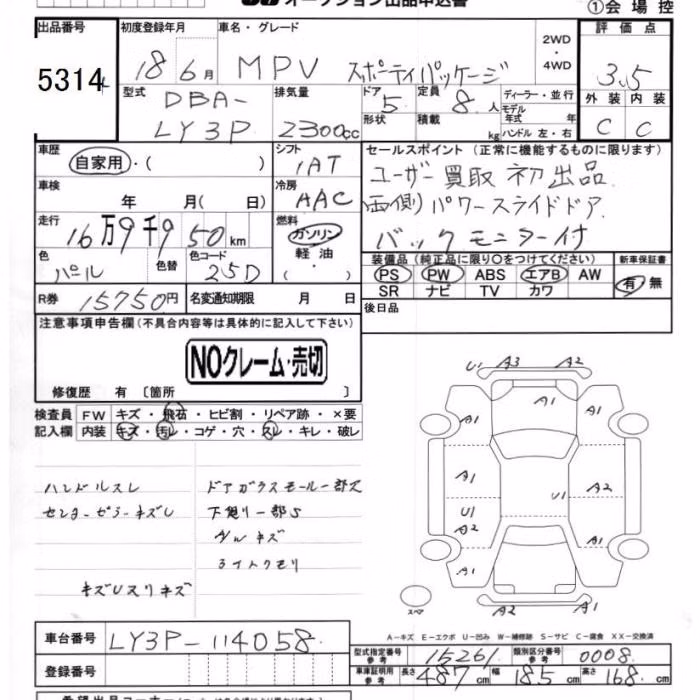 オークション出品申込書
①会場控
出品番号 初度登録年月 車名・グレード 2WD・4WD 評価点
5314 18 6月 MPV スポーティパッケージ 3.5
型式 DBA-LY3P 排気量 2300cc ドア 5 形状 定員 8人 積載 kg ディーラー・並行 モデル年式 年 ハンドル 左・右 外装 C 内装 C
車歴 自家用・( ) シフト IAT セールスポイント(正常に機能するものに限ります)
車検 年 月(日) 冷房 AAC ユーザー買取 初出品
走行 16万9千950km 燃料 ガソリン 軽油・( ) 両側パワースライドドア
バックモニター付
色 パール 色替 色コード 25D 装備品(純正品に限り○をつけてください) 新車保証書
PS PW ABS エアB AW 有 無
SR ナビ TV カワ
R券 15750円 名変通知期限 月 日 後日品
注意事項申告欄(不具合内容等は具体的に記入して下さい)
NOクレーム・売切
修復歴 有〔箇所 〕
検査員 FW キズ・飛石・ヒビ割・リペア跡・×要
記入欄 内装 キズ・汚レ・コゲ・穴・スレ・キレ・破レ
ハンドルスレ ドアガラスモール一部欠
下廻り一部S
A/W キズ
ライトクモリ
U1 A3 A2
A1 A1 A1
A1 U1 A2 U1 A2
A1 A1
A2 A2
スペア
A-キズ E-エクボ U-凹み W-補修跡 S-サビ C-腐食 XX-交換済
車台番号 LY3P-114058
登録番号
型式指定番号 参考 15261 類別区分番号 参考 0008
車庫証明用 参考 長さ 487cm 幅 185cm 高さ 168cm